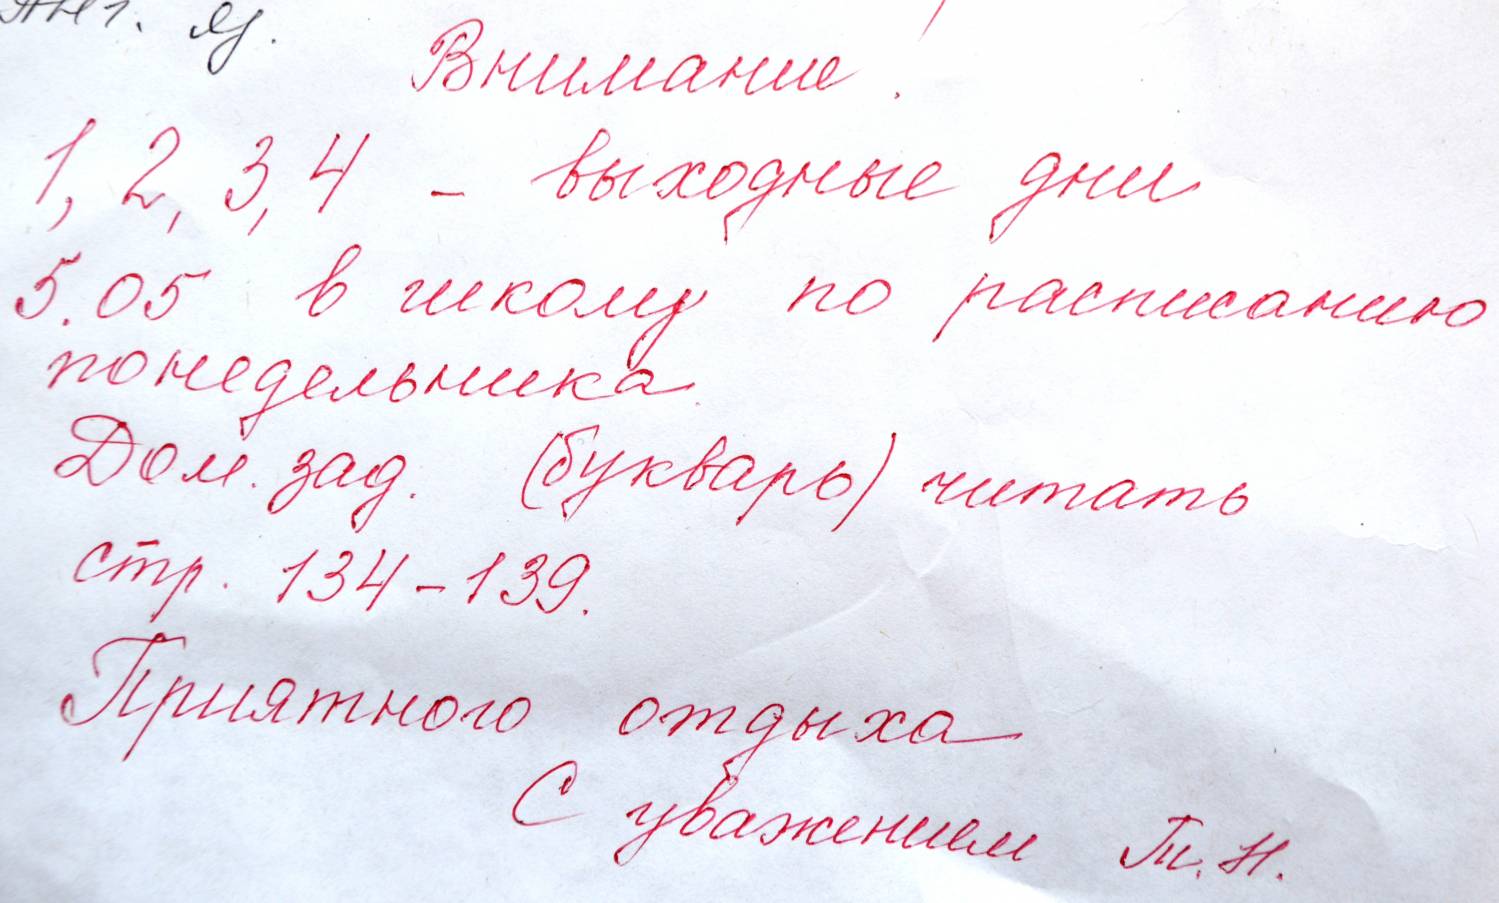 Анг. яз.
Внимание!
1, 2, 3, 4 - выходные дни
5.05 в школу по расписанию
понедельника.
Дом. зад. (букварь) читать
стр. 134-139.
Приятного отдыха
С уважением Т.Н.